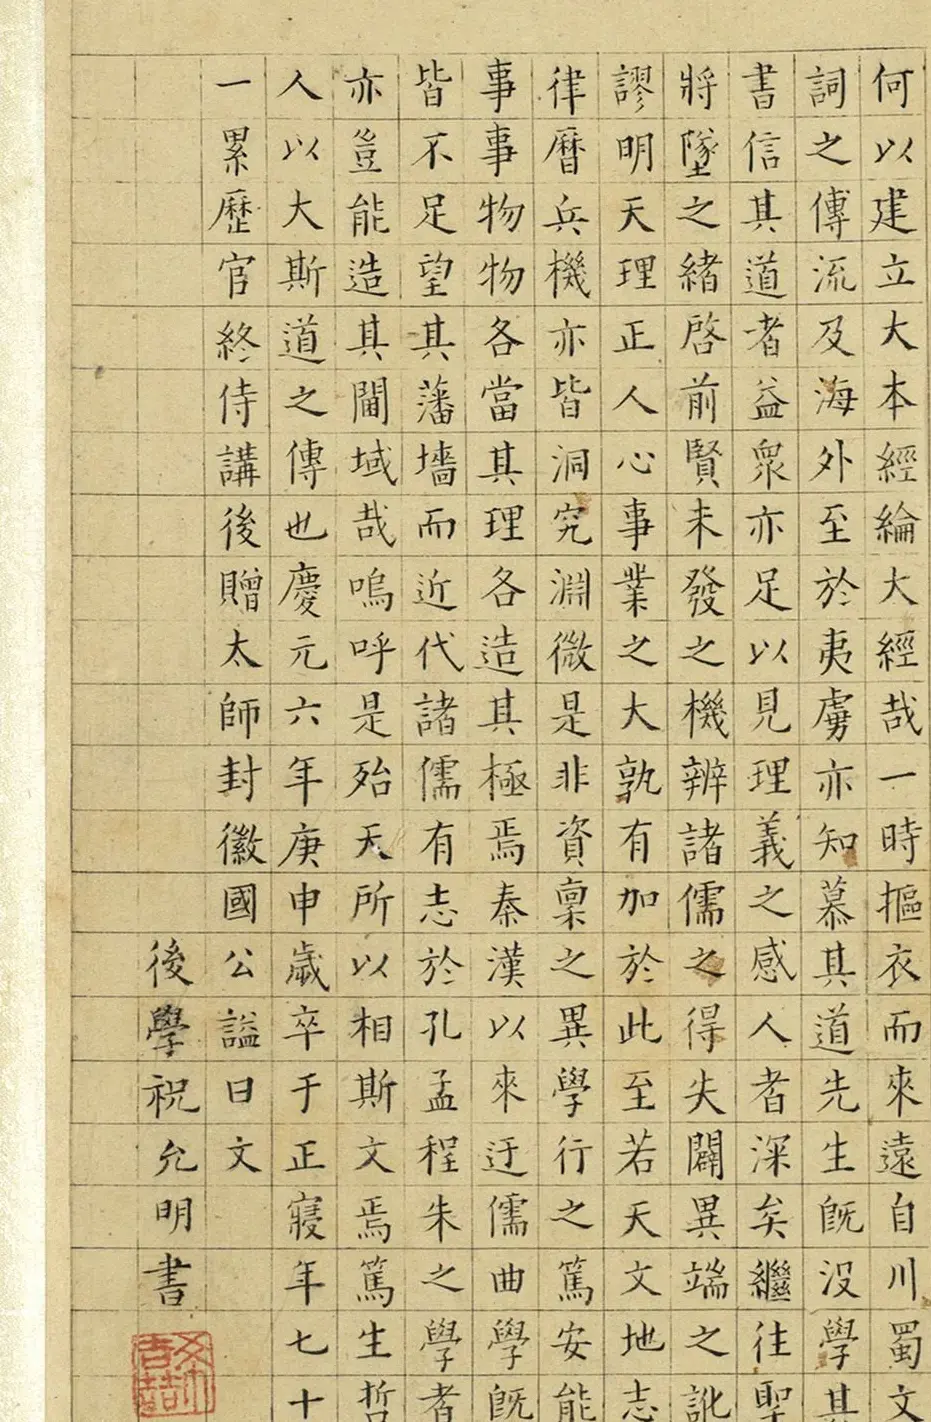 何以建立大本經綸大經哉一時摳衣而來遠自川蜀文
詞之傳流及海外至於夷虜亦知慕其道先生既沒學其
書信其道者益眾亦足以見理義之感人者深矣繼往聖
將墜之緒啓前賢未發之機辨諸儒之得失闢異端之訛
謬明天理正人心事業之大孰有加於此至若天文地志
律曆兵機亦皆洞究淵微是非資稟之異學行之篤安能
事事物物各當其理各造其極焉秦漢以來迂儒曲學既
皆不足望其藩墻而近代諸儒有志於孔孟程朱之學者
亦豈能造其閫域哉嗚呼是殆天所以相斯文焉篤生哲
人以大斯道之傳也慶元六年庚申歲卒于正寢年七十
一累歷官終侍講後贈太師封徽國公謚曰文
後學祝允明書